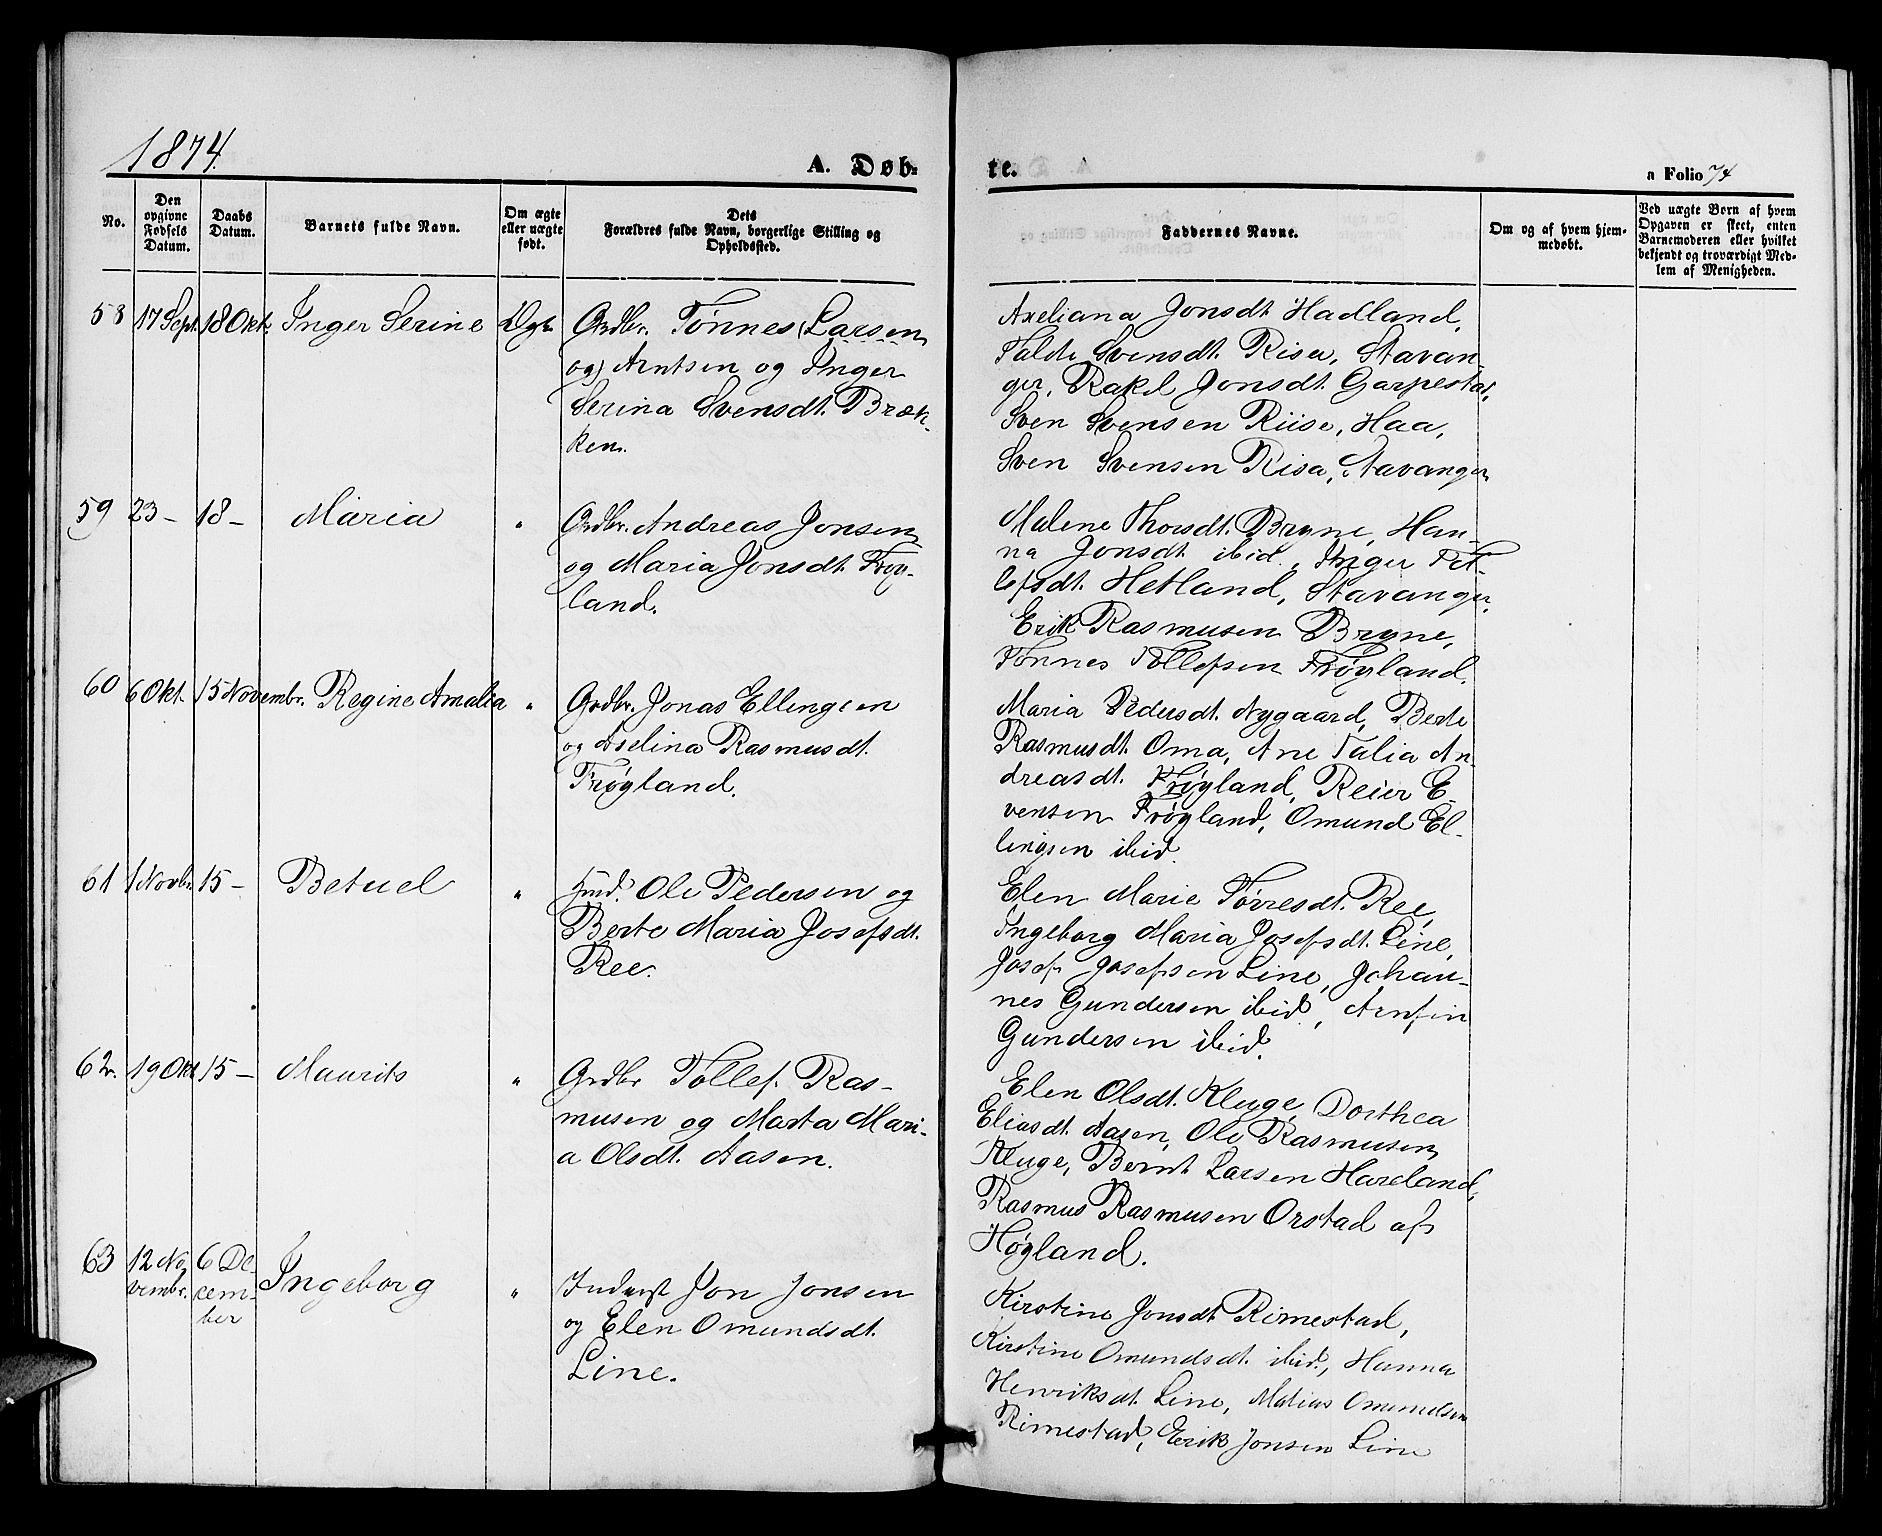 1874.
A. Døb-
te.
a Folio 74
No.
Den
opgivne
Fødsels
Datum.
Daabs
Datum.
Barnets fulde Navn.
Om ægte
eller uægte
født.
Dets
Forældres fulde Navn, borgerlige Stilling og
Opholdssted.
Faddernes Navne.
Om og af hvem hjem-
medøbt.
Ved uægte Børn af hvem
Opgaven er skeet, enten
Barnemoderen eller hvilket
bekjendt og troværdigt Med-
lem af Menigheden.
58 17 Sept. 18 Okt. Inger Serine Ægte
Grdbr. Tønnes (Larsen
og) Arntsen og Inger
Serina Svensdt. Bræk-
ken.
Axeliana Jonsdt Hadland,
Talde Svensdt. Risa, Stavan-
ger, Rakel Jonsdt. Garpestad,
Sven Svensen Riise, Haa,
Sven Svensen Risa, Stavanger
59 23 – 18 – Maria "
Grdbr. Andreas Jonsen
og Maria Jonsdt. Frøy-
land.
Malene Thorsdt. Bryne, Han-
na Jonsdt ibid., Inger Tit-
lefsdt. Hetland, Stavanger,
Erik Rasmusen Bryne,
Tønnes Tollefsen Frøyland.
60 6 Okt. 15 Novembr. Regine Amalia "
Grdbr. Jonas Ellingsen
og Aselina Rasmusdt.
Frøyland.
Maria Pedersdt. Nygaard, Berte
Rasmusdt. Oma, Ane Talia An-
dreasdt. Frøyland, Reier E-
vensen Frøyland, Omund El-
lingsen ibid.
61 1 Novbr. 15 – Betuel "
Hmd. Ole Pedersen og
Berte Maria Josefsdt.
Ree.
Elen Marie Tørresdt. Ree,
Ingeborg Maria Josefsdt. Line,
Josef Josefsen Line, Johan-
nes Gundersen ibid, Arnfin
Gundersen ibid.
62. 19 Okt 15 – Maurits "
Grdbr Tollef Ras-
musen og Marta Mari-
a Olsdt. Aasen.
Elen Olsdt. Kluge, Dorthea
Eliasdt. Aasen, Ole Rasmusen
Kluge, Bernt Larsen Hareland,
Rasmus Rasmusen Orstad af
Høyland.
63 12 No-
vembr. 6 De-
cem-
ber Ingeborg "
Inderst Jon Jonsen
og Elen Omundsdt.
Line.
Kirstine Jonsdt Rimestad,
Kirstine Omundsdt. ibid, Hanna
Henriksdt. Line, Matias Omundsen
Rimestad, Erik Jonsen Line